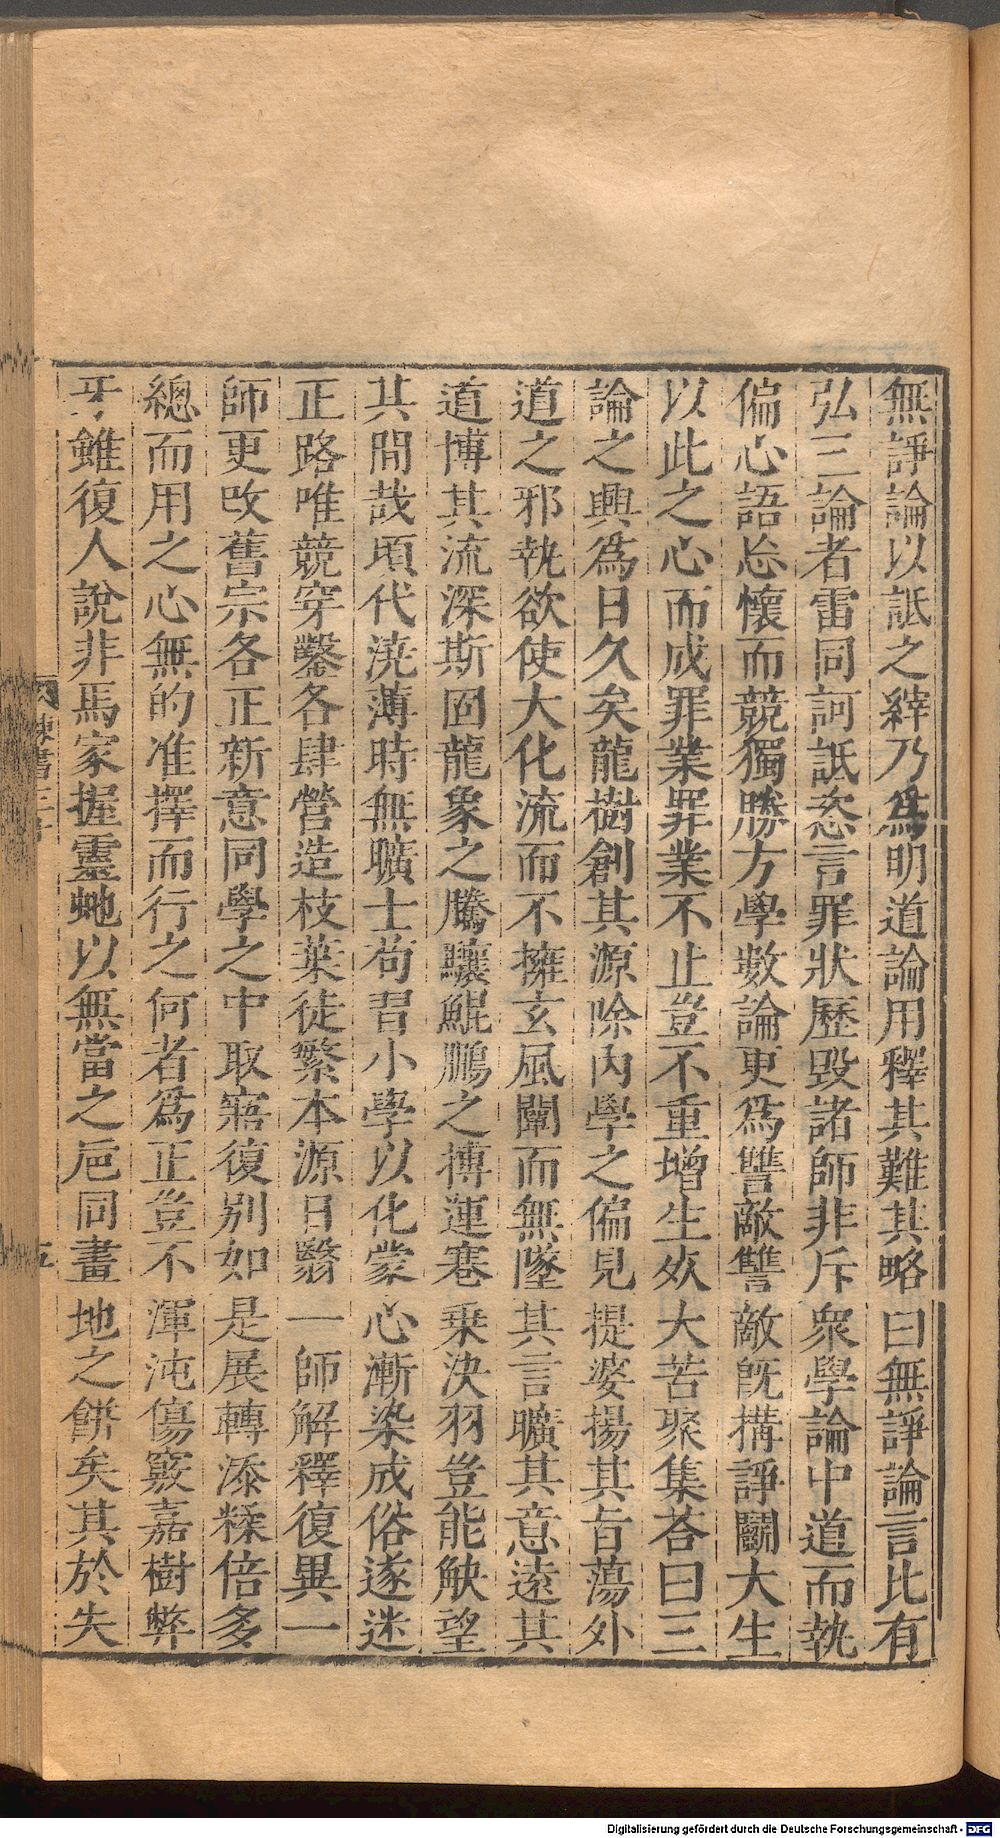 無諍論以詆之縡乃爲明道論用釋其難其略曰無諍論言比有
弘三論者雷同訶詆恣言罪狀歷毀諸師非斥衆學論中道而執
偏心語忘懷而競獨勝方學數論更爲讐敵讐敵旣搆諍鬭大生
以此之心而成罪業罪業不止豈不重增生死大苦聚集荅曰三
論之興爲日久矣龍樹創其源除內學之偏見提婆揚其旨蕩外
道之邪執欲使大化流而不擁玄風闡而無墜其言曠其意遠其
道博其流深斯固龍象之騰驤鯤鵬之摶運蹇乗決羽豈能觖望
其間哉頃代澆薄時無曠士苟習小學以化蒙心漸染成俗遂迷
正路唯競穿鑿各肆營造枝葉徒繁本源日翳一師解釋復異一
師更改舊宗各正新意同學之中取寤復別如是展轉添糅倍多
總而用之心無的准擇而行之何者爲正豈不渾沌傷竅嘉樹弊
牙雖復人說非馬家握靈虵以無當之巵同畫地之餅矣其於失
陳書三十
五
Digitalisierung gefördert durch die Deutsche Forschungsgemeinschaft - DFG